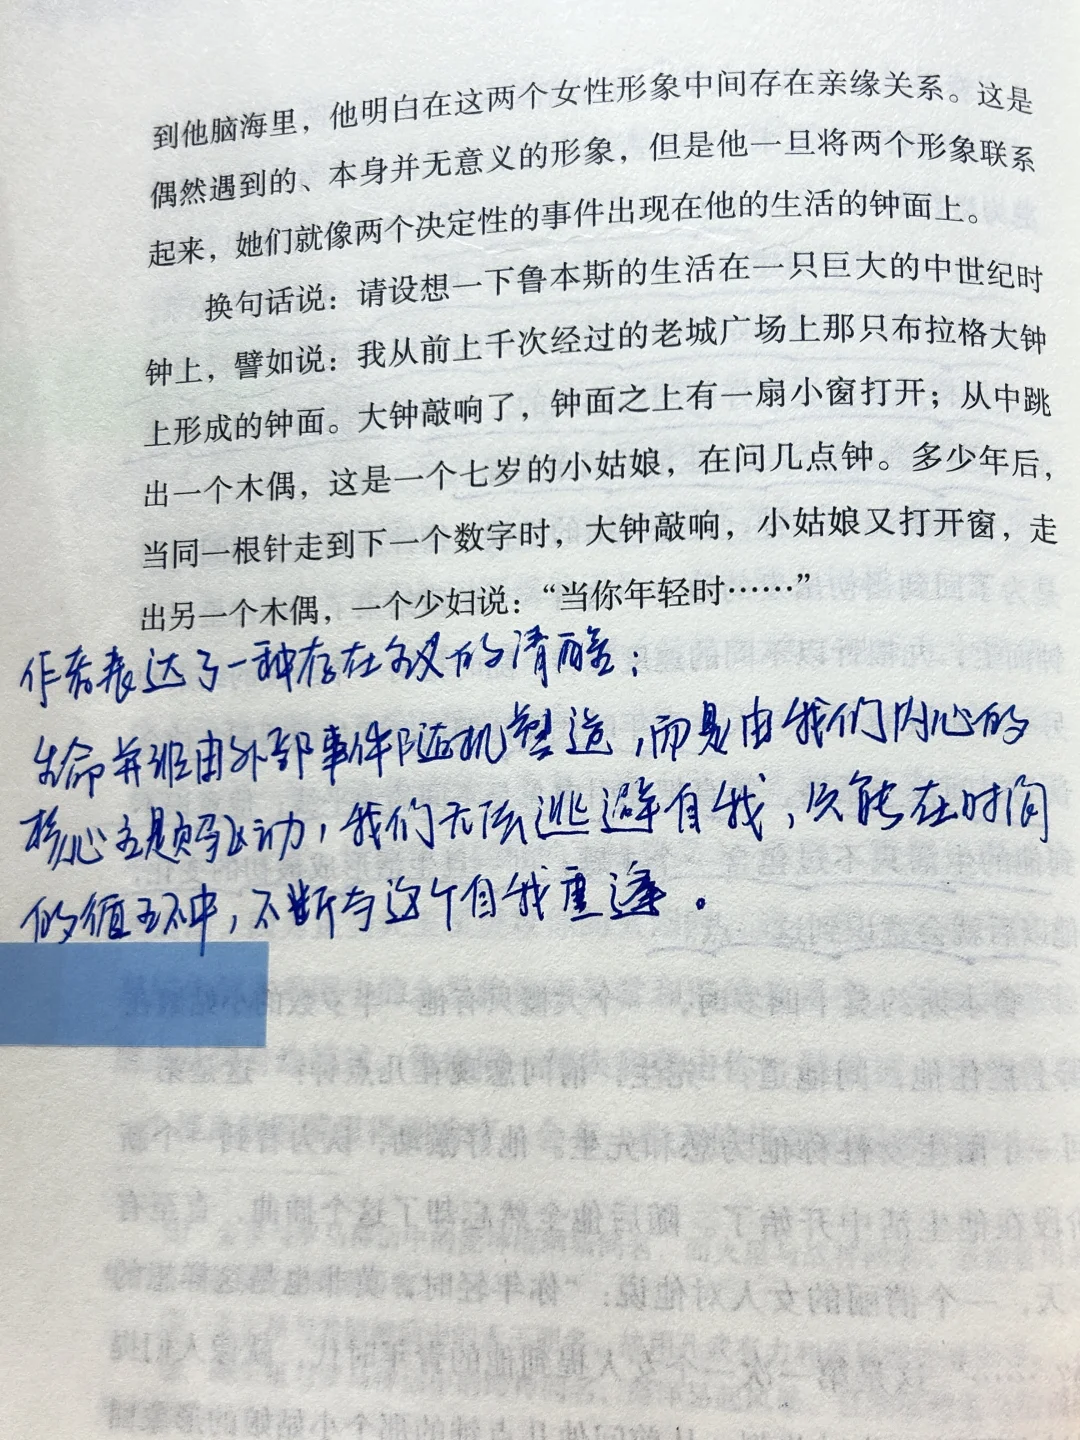 到他脑海里，他明白在这两个女性形象中间存在亲缘关系。这是
偶然遇到的、本身并无意义的形象，但是他一旦将两个形象联系
起来，她们就像两个决定性的事件出现在他的生活的钟面上。
换句话说：请设想一下鲁本斯的生活在一只巨大的中世纪时
钟上，譬如说：我从前上千次经过的老城广场上那只布拉格大钟
上形成的钟面。大钟敲响了，钟面之上有一扇小窗打开；从中跳
出一个木偶，这是一个七岁的小姑娘，在问几点钟。多少年后，
当同一根针走到下一个数字时，大钟敲响，小姑娘又打开窗，走
出另一个木偶，一个少妇说：“当你年轻时……”
作者表达了一种存在主义的清醒：
生命并非由外部事件随机塑造，而是由我们内心的
核心主题驱动，我们无法逃避自我，只能在时间
的循环中，不断与这个自我重逢。